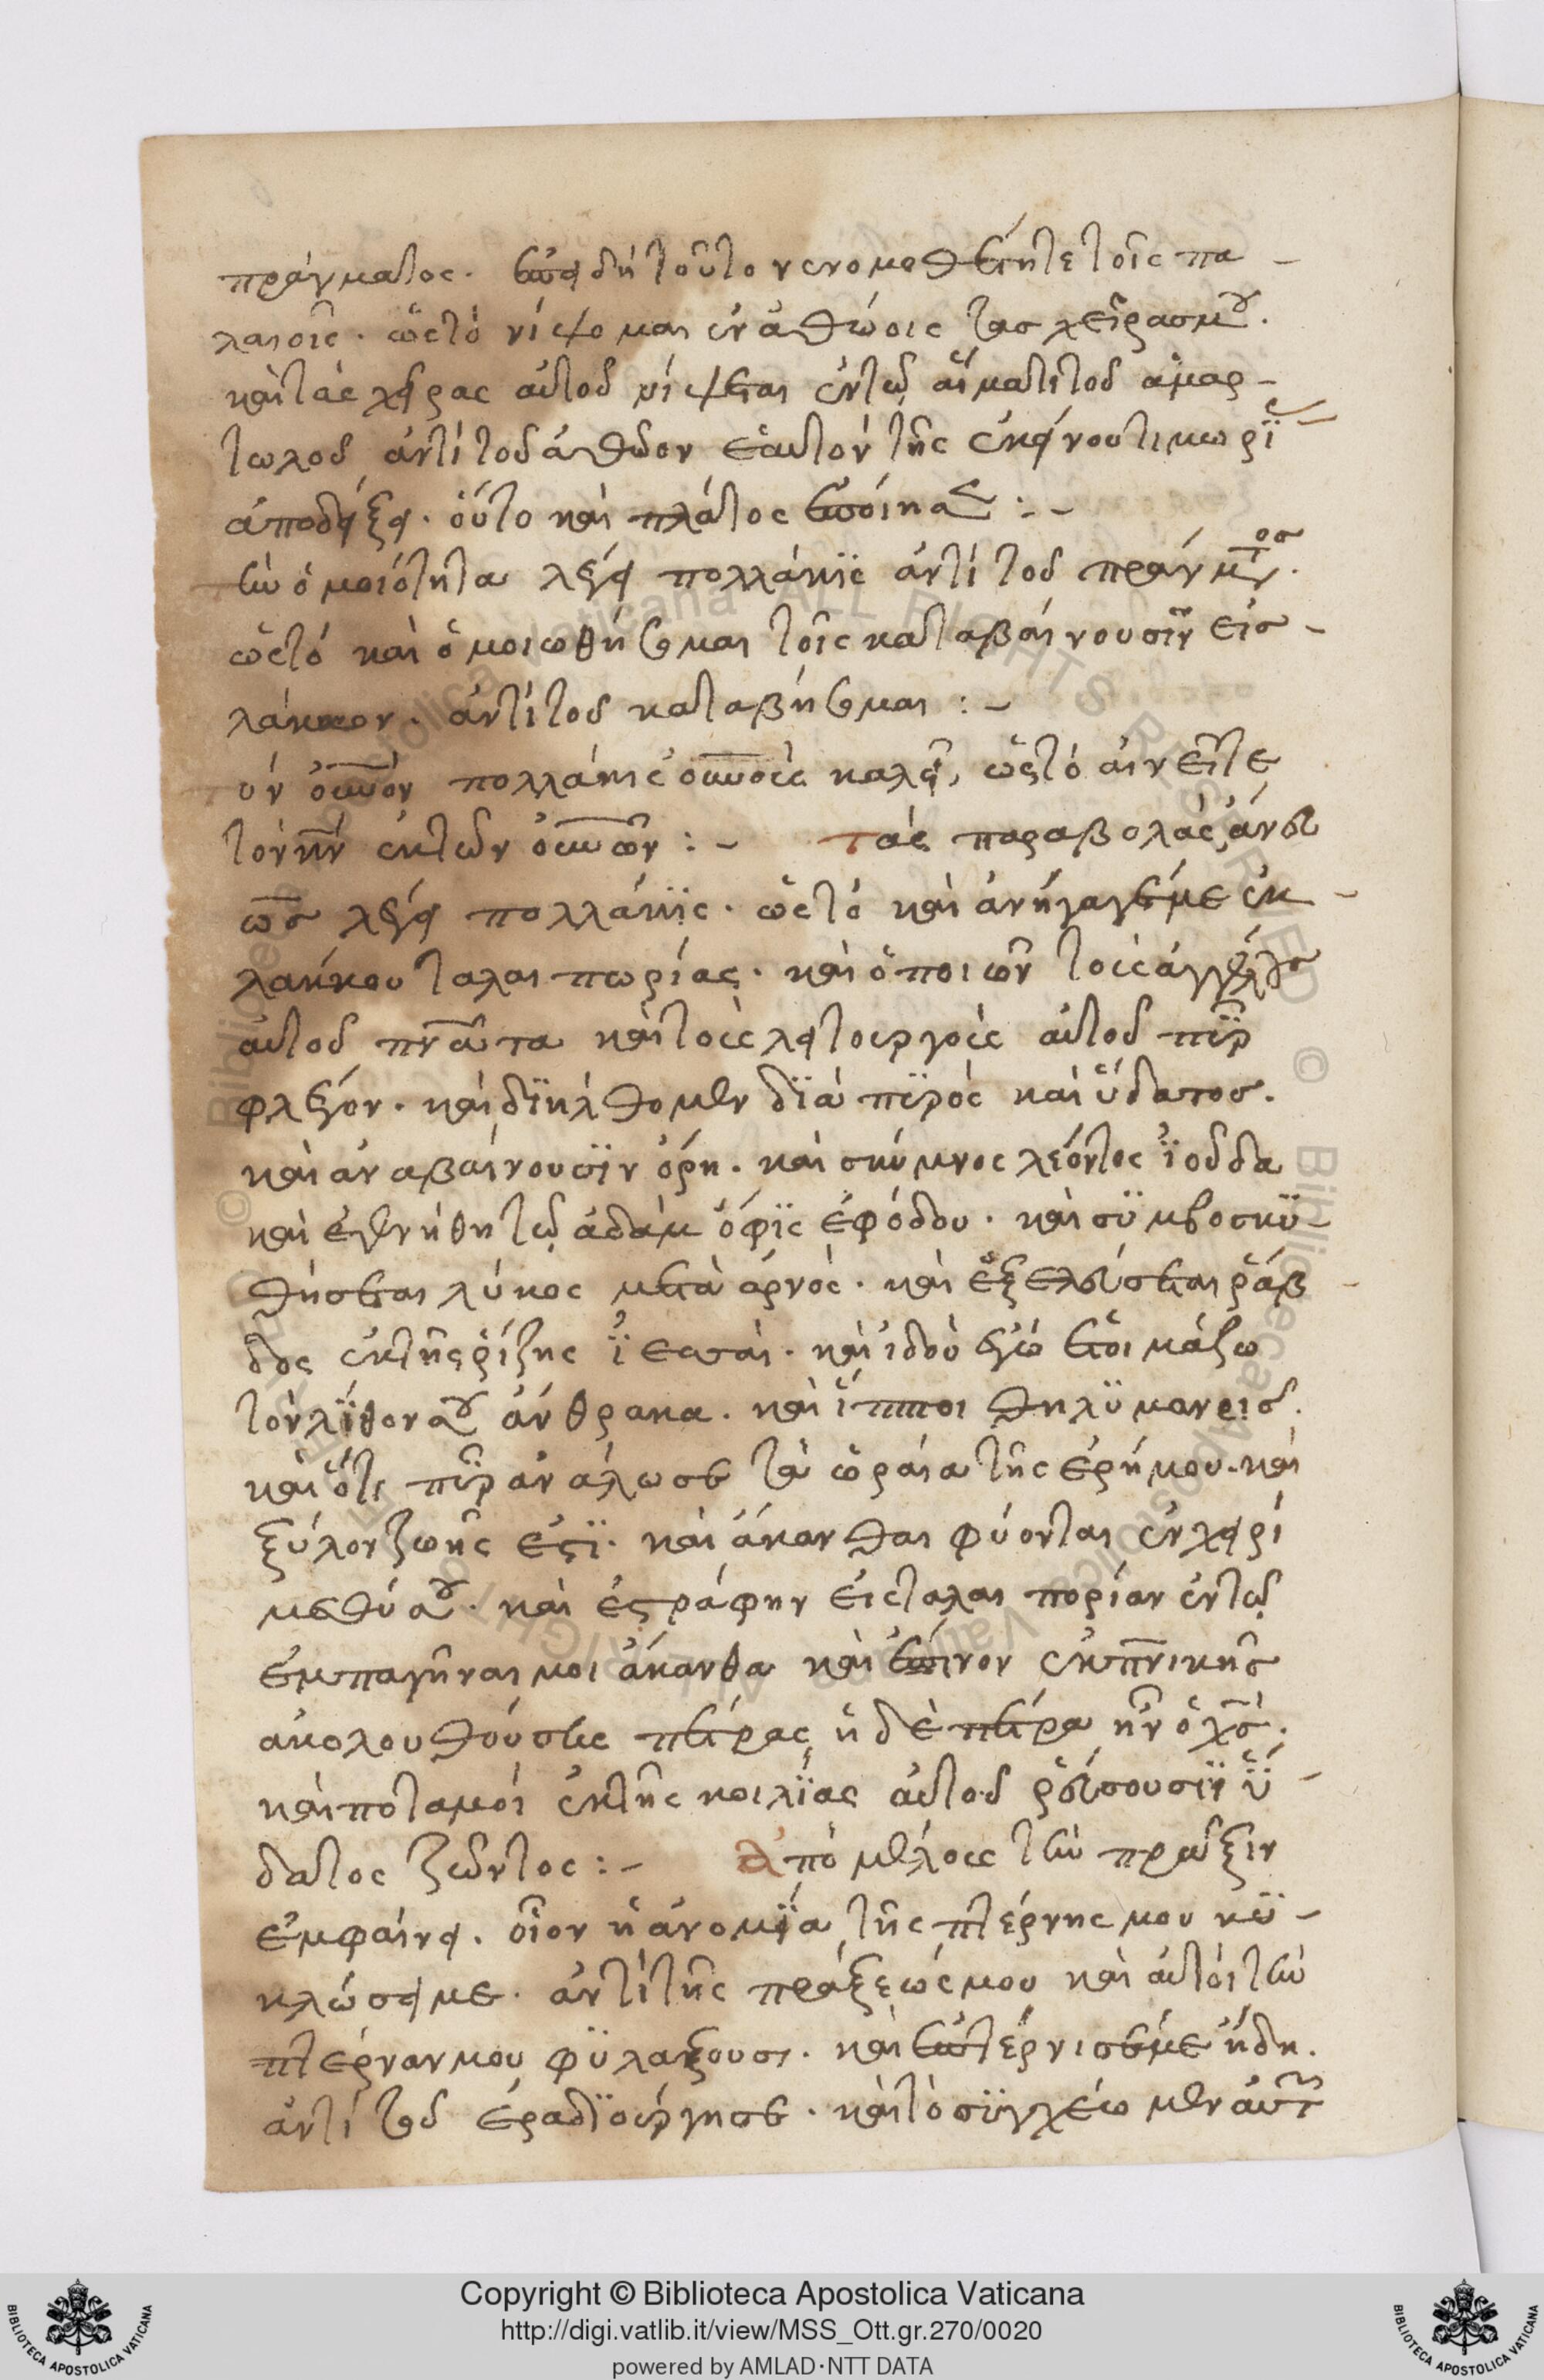 πράγματος. ἐπεὶ δὴ τοῦτο νενομοθέτητε τοῖς πα-
λαιοῖς. ὡς τὸ νίψομαι ἐν ἀθώοις τας χεῖρασ μου.
καὶ τὰς χεῖρας αὐτοῦ νίψεται ἐν τῷ αἵματι τοῦ ἁμαρ-
τωλοῦ ἀντὶ τοῦ ἀθῶον ἑαυτὸν τῆς ἐκείνου τιμωρΐ
ἀποδείξει. οὕτο καὶ πλάτος ἐποίησε :-
τὴν ὁμοιότητα λέγει πολλάκις ἀντὶ τοῦ πράγμτοσ.
ὡς τό καὶ ὁμοιωθήσομαι τοῖς καταβαίνουσιν εἰσ-
λάκκον. ἀντὶ τοῦ καταβήσομαι :-
ὐν οὐνον πολλάκις οὐνοὺς καλεῖ, ὡς τό αἰνεῖτε
τὸν κν ἐκ τῶν οὐνων :- τὰς παραβολὰς ἄνευ
ωσ λέγει πολλάκις. ὡς τό καὶ ἀνήγαγέ με ἐκ-
λακκου ταλαιπωρίας. καὶ ὁ ποιῶν τοὺς ἀγγέλουσ
αὐτοῦ πνατα καὶ τοὺς λειτουργοὺς αὐτοῦ πῦρ
φλέγον. καὶ διήλθομεν διὰ πυρὸς καὶ ὕδατοσ.
καὶ ἀναβαίνουσιν ὄρη. καὶ σκύμνος λέοντος ἰούδα
καὶ ἐγενήθη τῷ ἀδὰμ ὄφις ἐφόδου. καὶ συμβοσκϋ-
θήσεται λύκος μετὰ ἀρνός. καὶ ἐξελεύσεται ῥάβ
δος ἐκ τῆς ῥίζης ἰεσσαί. καὶ ἰδοὺ ἐγὼ ἑτοιμάζω
τὸν λίθον σου ἄνθρακα. καὶ ἵπποι θηλυμανεισ.
καὶ ὅτι πῦρ ἀνάλωσε τὰ ὡραία τῆς ἐρήμου. καὶ
ξύλον ζωῆς ἐστϊ. καὶ ἄκανθαι φύονται ἐν χειρὶ
μεθύσου. καὶ ἐστράφην εἰς ταλαιπορίαν ἐν τῷ
ἐμπαγῆναι μοι ἄκανθα καὶ ἔπινον ἐκ πνικῆσ
ἀκολουθούσης πέτρας ἡ δὲ πέτρα ἦν ὁ χσ.
καὶ ποταμοί ἐκ τῆς κοιλίας αὐτοῦ ῥεύσουσιν ὕ-
δατος ζῶντος :- ἀπὸ μέλους τὴν πρᾶξιν
ἐμφαίνει. οἷον ἡ ἀνομία τῆς πτέρνης μου κϋ-
κλώσει με. ἀντὶ τῆς πράξεώς μου καὶ αὐτοὶ τὴν
πτέρναν μου φυλάξουσι. καὶ ἐπτέρνισέ με ἤδη.
ἀντὶ τοῦ ἐραδϊούργησε. καὶ τὸ συγχέωμεν αὐτῶν